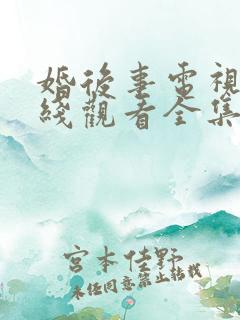 婚後事電視
綫觀看全集
宮本佳野
未經同意禁止轉載